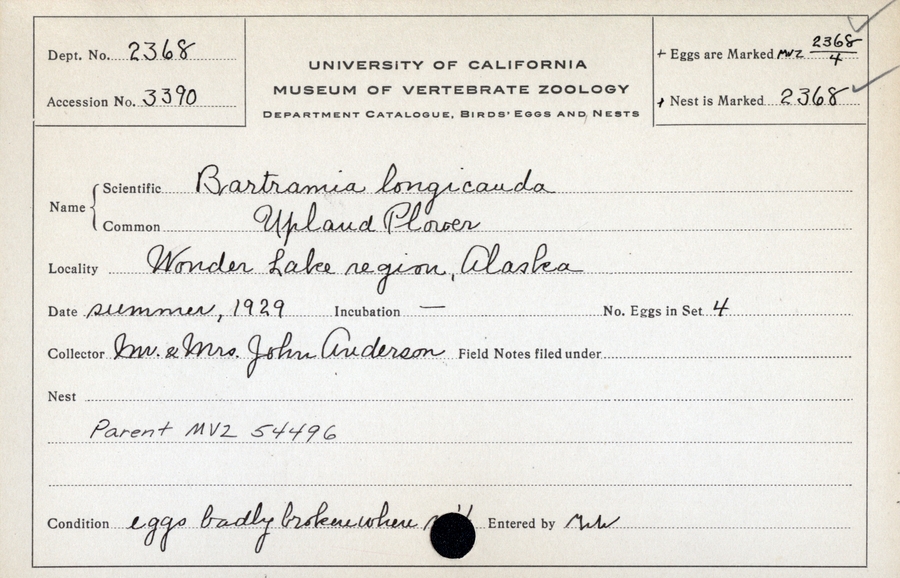 Dept. No. 2368
Accession No. 3390
UNIVERSITY OF CALIFORNIA
MUSEUM OF VERTEBRATE ZOOLOGY
DEPARTMENT CATALOGUE, BIRDS' EGGS AND NESTS
+ Eggs are Marked MVZ 2368/4
+ Nest is Marked 2368
Name
Scientific Bartramia longicauda
Common Upland Plover
Locality Wonder Lake region, Alaska
Date summer, 1929 Incubation — No. Eggs in Set 4
Collector Mr. & Mrs. John Anderson Field Notes filed under
Nest
Parent MVZ 54496
Condition eggs badly broken when Entered by